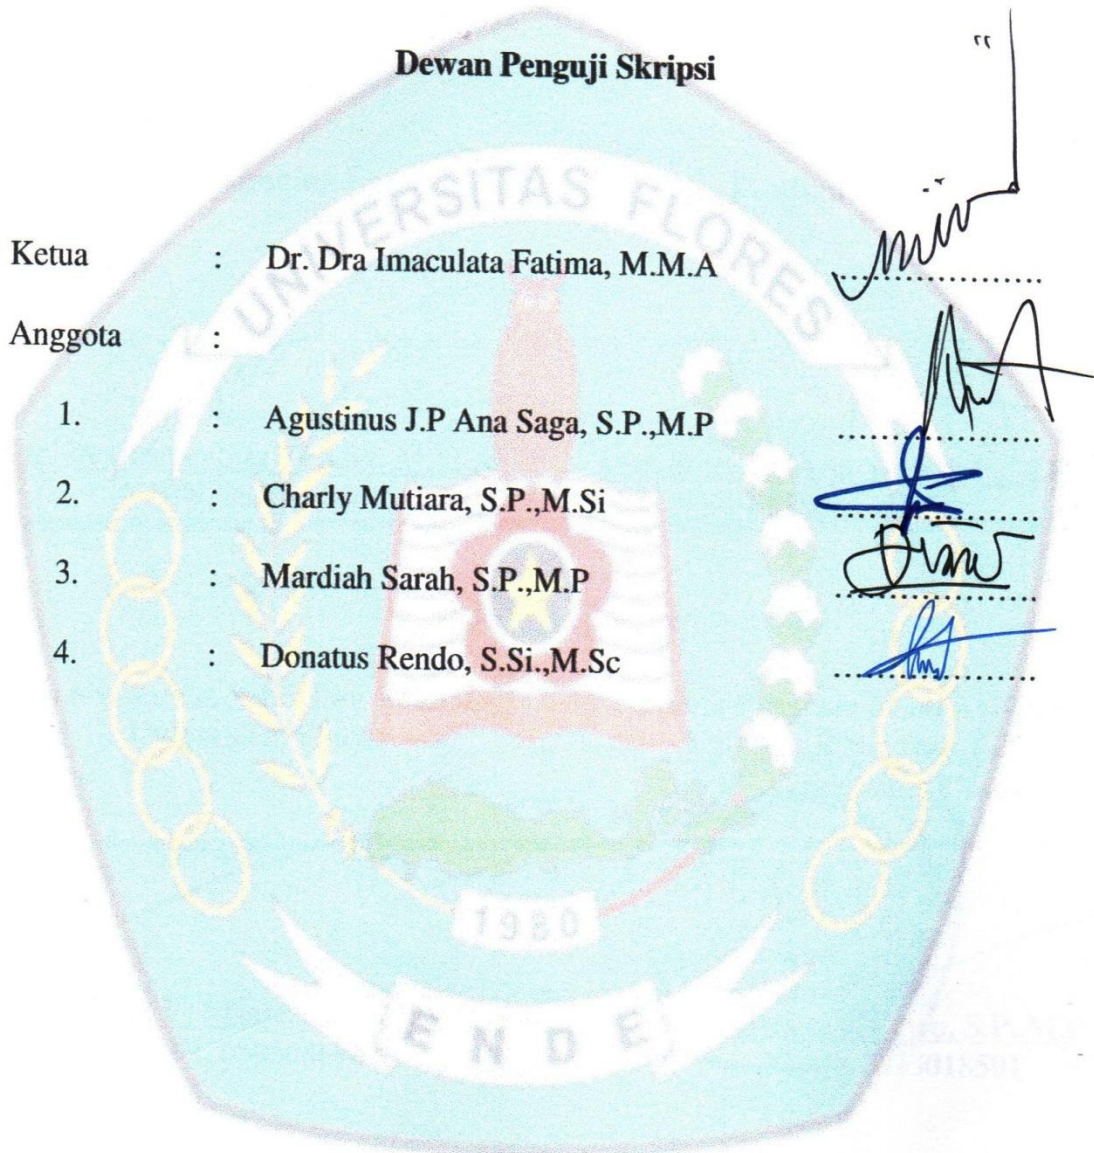 Dewan Penguji Skripsi
UNIVERSITAS FLORES
Ketua : Dr. Dra Imaculata Fatima, M.M.A ....................
Anggota :
1. : Agustinus J.P Ana Saga, S.P.,M.P ....................
2. : Charly Mutiara, S.P.,M.Si ....................
3. : Mardiah Sarah, S.P.,M.P ....................
4. : Donatus Rendo, S.Si.,M.Sc ....................
1980
ENDE